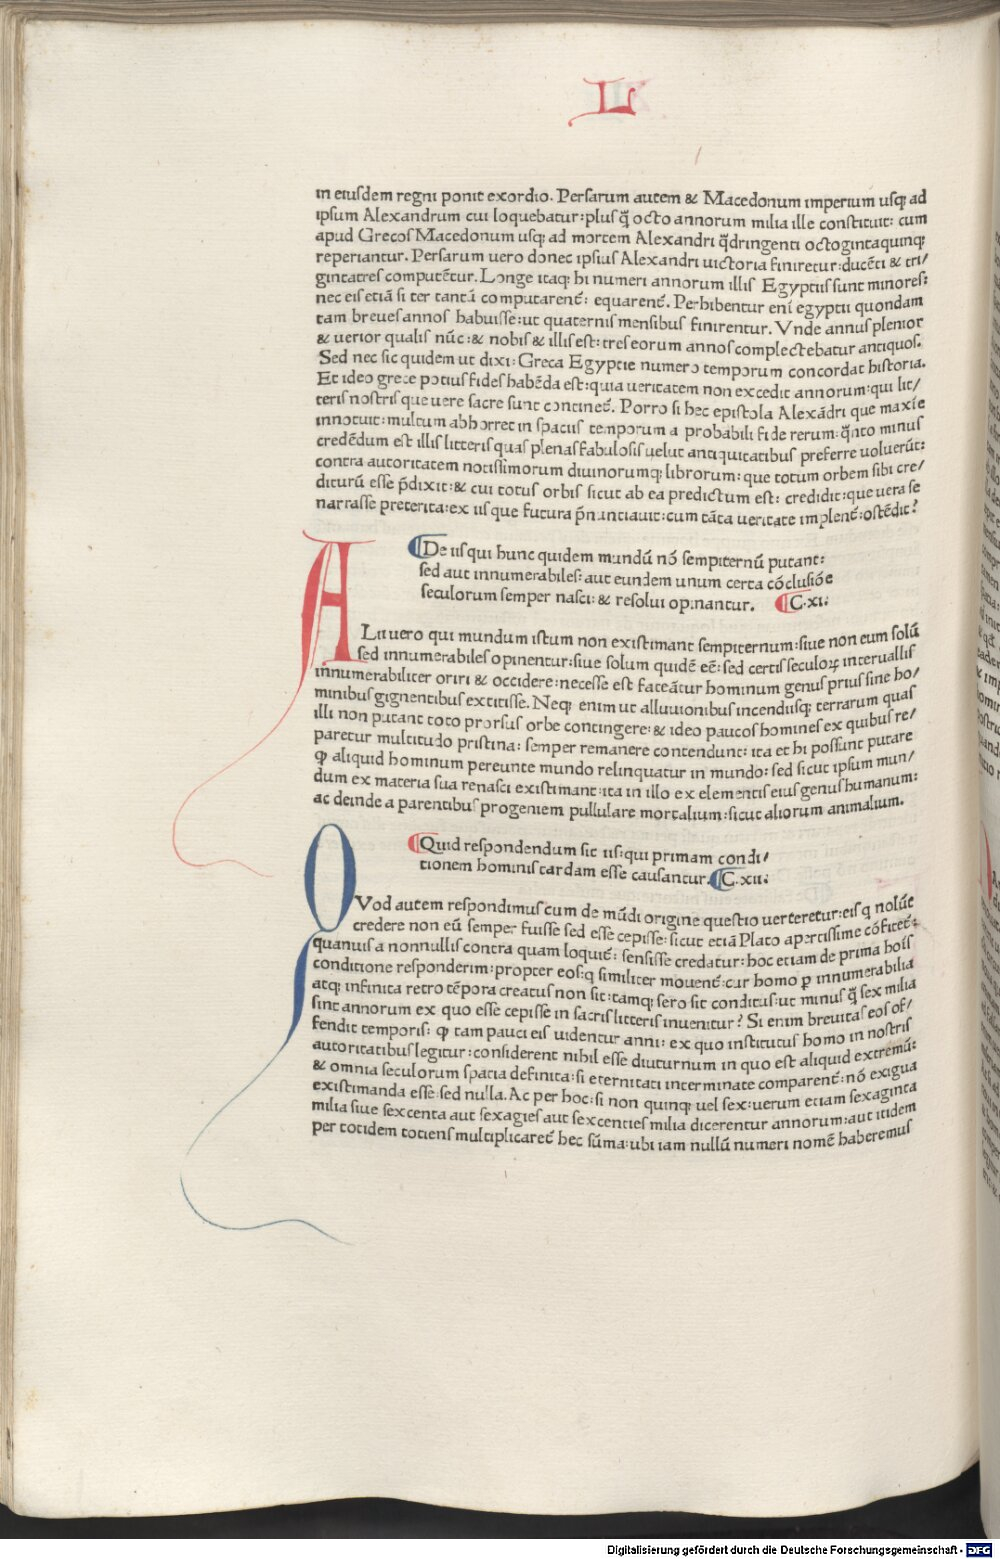 L
in eiusdem regni ponit exordio. Persarum autem & Macedonum imperium usq; ad
ipsum Alexandrum cui loquebatur: plus q̃ octo annorum milia ille constituit: cum
apud Grecos Macedonum usq; ad mortem Alexandri q̃dringenti octogintaquinq;
reperiantur. Persarum uero donec ipsius Alexandri uictoria finiretur: ducẽti & tri/
gintatres computẽtur. Longe itaq; hi numeri annorum illis Egyptiis sunt minores:
nec eis etiã si ter tantã computarent̃: equarent̃. Perhibentur eni egyptii quondam
tam breues annos habuisse: ut quaternis mensibus finirentur. Vnde annus plenior
& uerior qualis nũc: & nobis & illis est: tres eorum annos complectebatur antiquos.
Sed nec sic quidem ut dixi: Greca Egyptie numero temporum concordat historia.
Et ideo grece potius fides habẽda est: quia ueritatem non excedit annorum: qui lit/
teris nostris que uere sacre sunt continet̃. Porro si hec epistola Alexãdri que maxĩe
innotuit: multum abhorret in spatiis temporum a probabili fide rerum: q̃nto minus
credẽdum est illis litteris quas plenas fabulosis uelut antiquitatibus preferre uoluerũt:
contra autoritatem notissimorum diuinorumq; librorum: que totum orbem sibi cre/
diturũ esse p̃dixit: & cui totus orbis sicut ab ea predictum est: credidit: que uera se
narrasse preterita: ex iis que futura p̃nunciauit: cum tãta ueritate implent̃: ostẽdit?
¶De iis qui hunc quidem mundũ nõ sempiternũ putant:
sed aut innumerabiles: aut eundem unum certa cõclusiõe
seculorum semper nasci: & resolui opinantur. ¶C.xi:
ALii uero qui mundum istum non existimant sempiternum: siue non eum solũ
sed innumerabiles opinentur: siue solum quidẽ eẽ: sed certis seculoꝝ interuallis
innumerabiliter oriri & occidere: necesse est fateãtur hominum genus prius sine ho/
minibus gignentibus extitisse. Neq; enim ut alluuionibus incendiisq; terrarum quas
illi non putant toto prorsus orbe contingere: & ideo paucos homines ex quibus re/
paretur multitudo pristina: semper remanere contendunt: ita et hi possunt putare
ꝙ aliquid hominum pereunte mundo relinquatur in mundo: sed sicut ipsum mun/
dum ex materia sua renasci existimant: ita in illo ex elementis eius genus humanum:
ac deinde a parentibus progeniem pullulare mortalium: sicut aliorum animalium.
¶Quid respondendum sit iis: qui primam condi/
tionem hominis tardam esse causantur. ¶C.xii:
QVod autem respondimus cum de mũdi origine questio uerteretur: eis q nolũt
credere non eũ semper fuisse sed esse cepisse: sicut etiã Plato apertissime cõfitet̃:
quanuis a nonnullis contra quam loquit̃: sensisse credatur: hoc etiam de prima hoĩs
conditione responderim: propter eos: q similiter mouent̃: cur homo ꝑ innumerabilia
atq; infinita retro tẽpora creatus non sit: tamq; sero sit conditus: ut minus q̃ sex milia
sint annorum ex quo esse cepisse in sacris litteris inuenitur? Si enim breuitas eos of/
fendit temporis: ꝙ tam pauci eis uidentur anni: ex quo institutus homo in nostris
autoritatibus legitur: considerent nihil esse diuturnum in quo est aliquid extremũ:
& omnia seculorum spatia definita: si eternitati interminate comparent̃: nõ exigua
existimanda esse: sed nulla. Ac per hoc: si non quinq; uel sex: uerum etiam sexaginta
milia siue sexcenta aut sexagies aut sexcenties milia dicerentur annorum: aut itidem
per totidem totiens multiplicaret̃ hec sũma: ubi iam nullũ numeri nomẽ haberemus
Digitalisierung gefördert durch die Deutsche Forschungsgemeinschaft - DFG